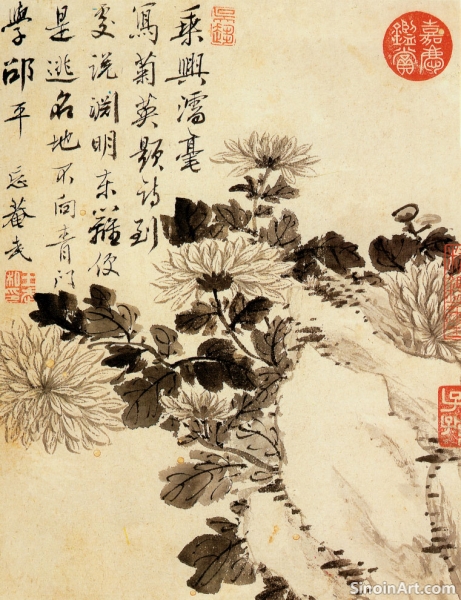 乘興濡毫
寫菊英題詩到
處説淵明東籬便
是逃名地不向青門
學邵平 忘菴武
嘉慶鑑賞
SinoinArt.com